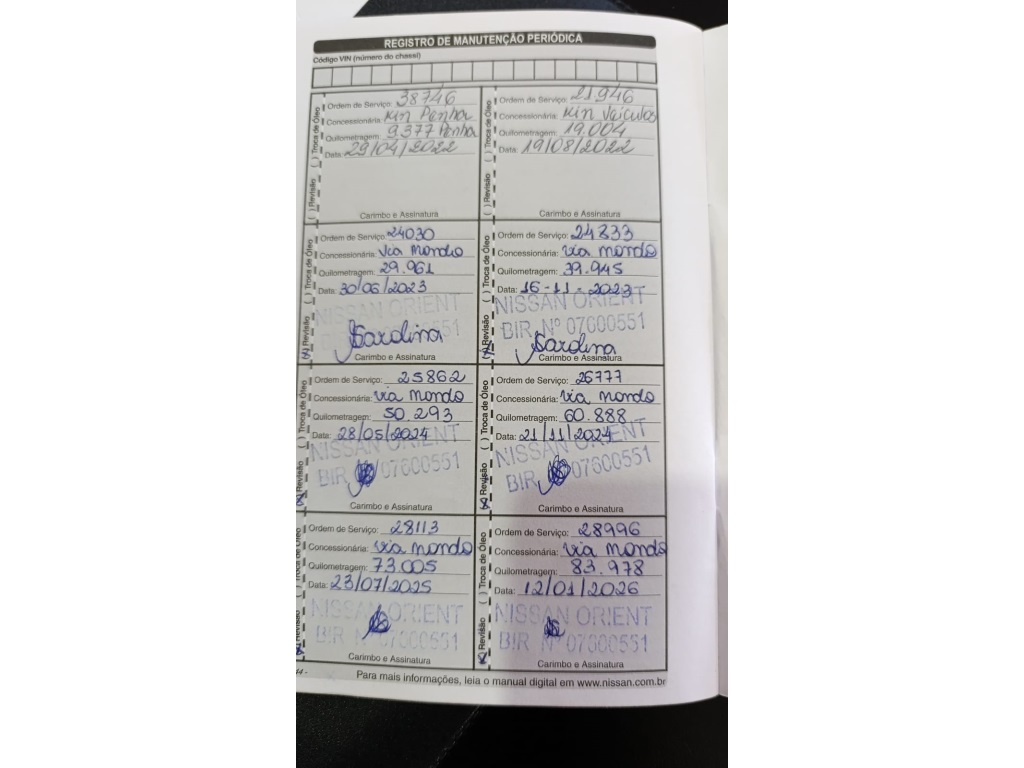 REGISTRO DE MANUTENÇÃO PERIÓDICA
Código VIN (número do chassi)
( ) Revisão ( ) Troca de Óleo
Ordem de Serviço: 38746
Concessionária: Kin Penha
Quilometragem: 9.377 Penha
Data: 29/04/2022
Carimbo e Assinatura
( ) Revisão ( ) Troca de Óleo
Ordem de Serviço: 21946
Concessionária: Kin Veiculos
Quilometragem: 19.004
Data: 19/08/2022
Carimbo e Assinatura
(X) Revisão ( ) Troca de Óleo
Ordem de Serviço: 24030
Concessionária: Via mondo
Quilometragem: 29.961
Data: 30/06/2023
NISSAN ORIENT
Carimbo e Assinatura
(X) Revisão ( ) Troca de Óleo
Ordem de Serviço: 24833
Concessionária: Via mondo
Quilometragem: 39.945
Data: 16-11-2023
NISSAN ORIENT
BIR Nº 07600551
Carimbo e Assinatura
(X) Revisão ( ) Troca de Óleo
Ordem de Serviço: 25862
Concessionária: Via mondo
Quilometragem: 50.293
Data: 28/05/2024
NISSAN ORIENT
BIR 07600551
Carimbo e Assinatura
(X) Revisão ( ) Troca de Óleo
Ordem de Serviço: 26777
Concessionária: Via mondo
Quilometragem: 60.888
Data: 21/11/2024
NISSAN ORIENT
BIR 07600551
Carimbo e Assinatura
(X) Revisão ( ) Troca de Óleo
Ordem de Serviço: 28113
Concessionária: Via mondo
Quilometragem: 73.005
Data: 23/07/2025
NISSAN ORIENT
BIR Nº 07600551
Carimbo e Assinatura
(X) Revisão ( ) Troca de Óleo
Ordem de Serviço: 28996
Concessionária: Via mondo
Quilometragem: 83.978
Data: 12/01/2026
NISSAN ORIENT
BIR Nº 07600551
Carimbo e Assinatura
Para mais informações, leia o manual digital em www.nissan.com.br